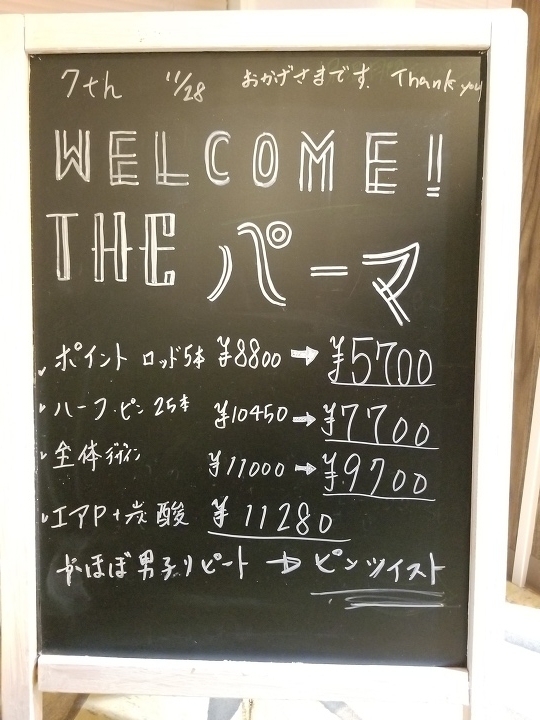 7th 11/28 おかげさまです. Thank you
WELCOME!!
THE パーマ
ポイント ロッド5本 ¥8800 → ¥5700
ハーフ・ピン 25本 ¥10450 → ¥7700
全体デザイン ¥11000 → ¥9700
エアP+炭酸 ¥11280
ほぼ男子リピート → ピンツイスト